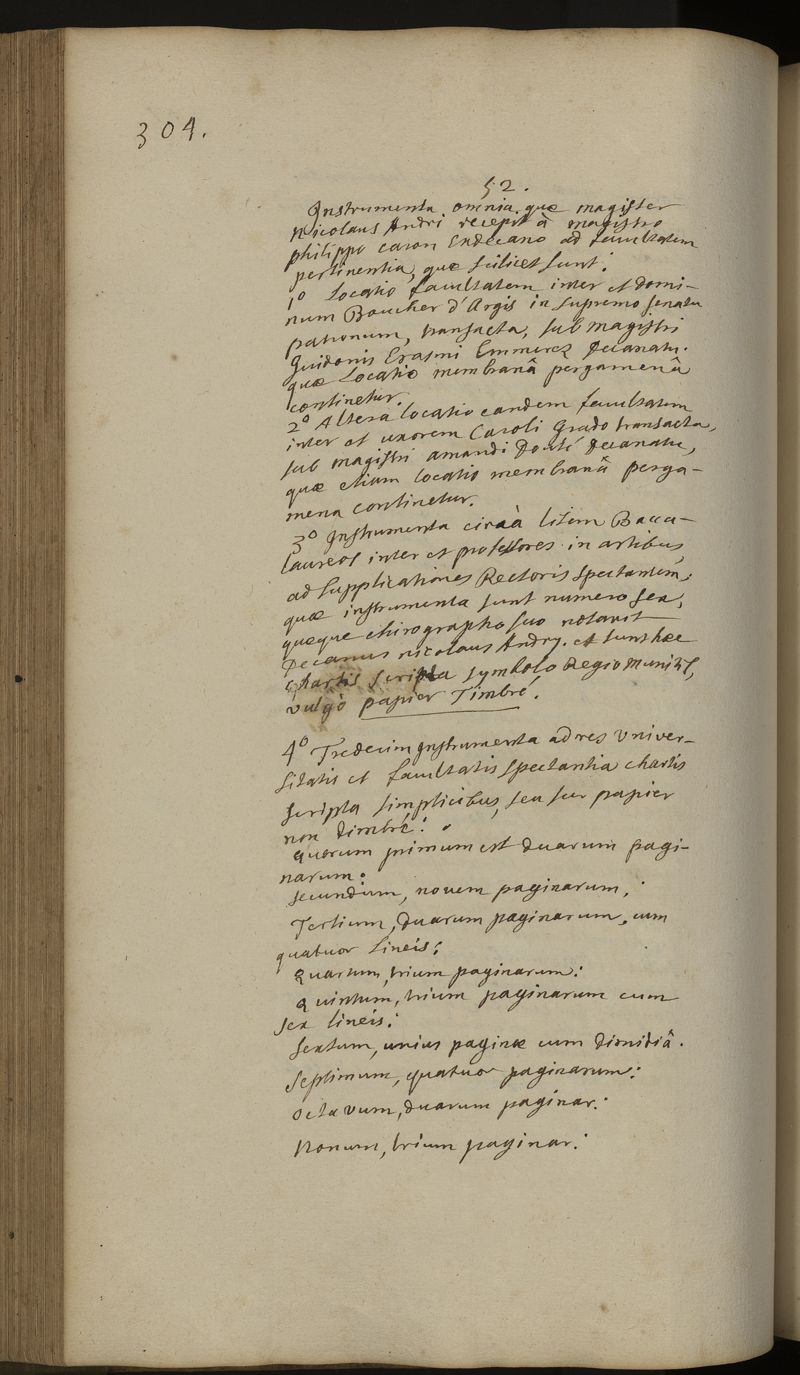 304.
52.
Instrumenta omnia quæ magister
Nicolaus Andri recepit à magistro
philippo caron Exdecano ad facultatem
pertinentia, quæ scilicet sunt:
1º Locatio facultatem inter et domi-
num Boucher d'Argis in supremo senatu
patronum, transacta, sub magistri
Guidonis Erasmi Emmerez Decanatu.
quæ Locatio membranâ pergamenâ
continetur.
2º Altera locatio eandem facultatem
inter et uxorem Caroli Grado transacta,
sub magistri amandi Douté Decanatu,
quæ etiam locatio membranâ perga-
mena continetur.
3º Instrumenta circà litem Bacca-
laureos inter et professores in artibus,
ad supplicationes Rectoris spectantem,
quæ instrumenta sunt numero sex,
quæque chirographo suo notavit
Decanus nicolaus Andry. et sunt hæc
chartis scripta symbolo Regio munitis,
vulgò papier Timbré.
4º Tredecim instrumenta ad res Univer-
sitatis et facultatis spectantia chartis
scripta simplicibus, seu sur papier
non timbré:
quorum primum est duarum pagi-
narum:
secundum, novem paginarum;
Tertium, duarum paginarum, cum
quatuor lineis;
Quartum, trium paginarum:
quintum, trium paginarum cum
sex lineis:
sextum, unius paginæ cum dimidiâ.
Septimum, quatuor paginarum:
octavum, duarum paginar:
Nonum, trium paginar: